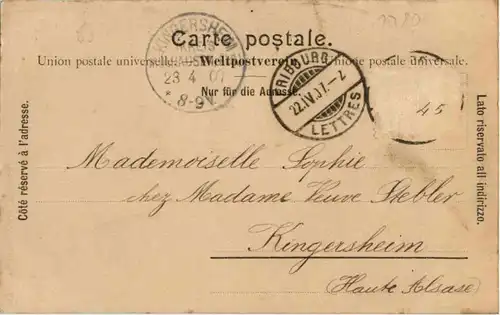 Carte postale.
Union postale universelle. Weltpostverein. Unione postale universale.
Nur für die Adresse.
KINGERSHEIM
23 4 0
* 8-9V
FRIBOURG
22.IV.07.-Z
LETTRES
45
Côté réservé à l'adresse.
Lato riservato all indirizzo.
Mademoiselle Sophie
chez Madame Veuve Stebler
Kingersheim
(Haute Alsace)